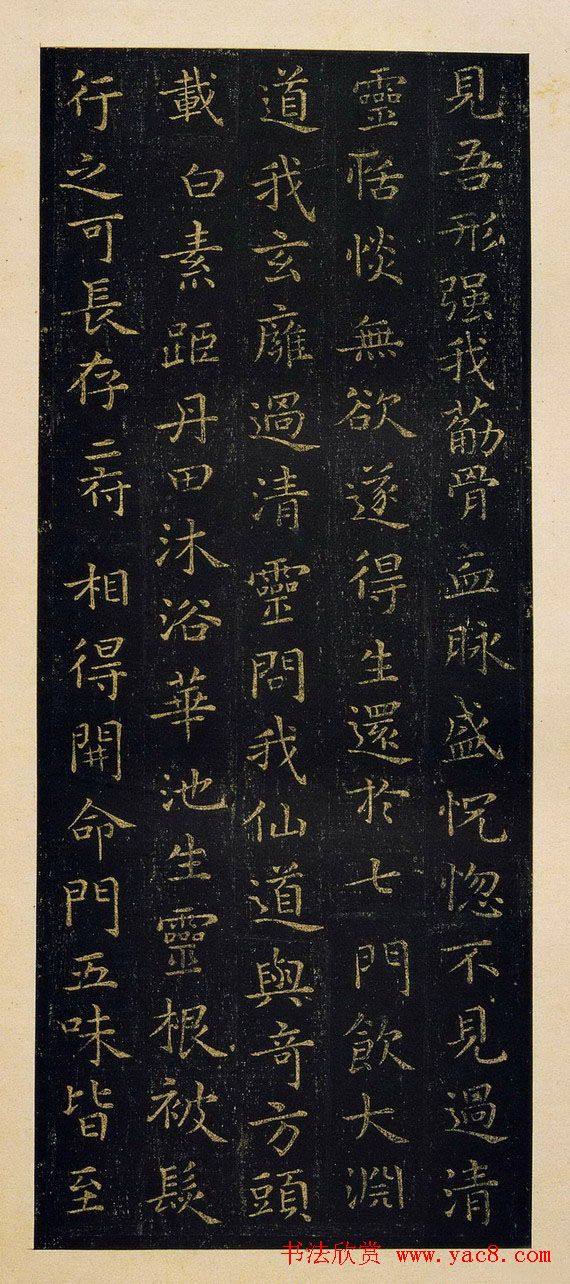 見吾形强我茘骨血脉盛怳惚不見過清
靈恬惔無欲遂得生還於七門飲大淵
道我玄廱過清靈問我仙道與奇方頭
載白素距丹田沐浴華池生靈根被髮
行之可長存二府相得開命門五味皆至
书法欣赏 www.yac8.com